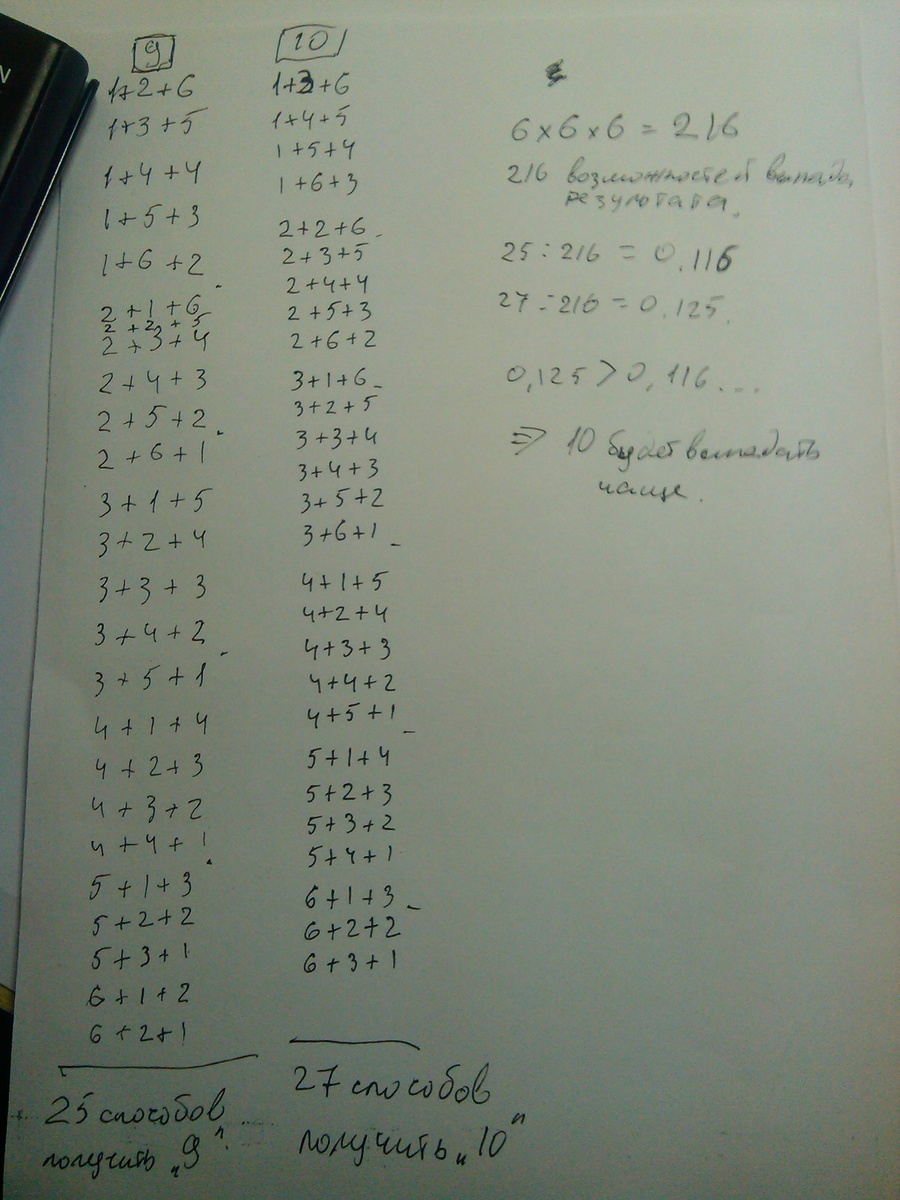 9
1+2+6
1+3+5
1+4+4
1+5+3
1+6+2
2+1+6
2+2+5
2+3+4
2+4+3
2+5+2
2+6+1
3+1+5
3+2+4
3+3+3
3+4+2
3+5+1
4+1+4
4+2+3
4+3+2
4+4+1
5+1+3
5+2+2
5+3+1
6+1+2
6+2+1
25 способов
получить „9"
10
1+3+6
1+4+5
1+5+4
1+6+3
2+2+6
2+3+5
2+4+4
2+5+3
2+6+2
3+1+6
3+2+5
3+3+4
3+4+3
3+5+2
3+6+1
4+1+5
4+2+4
4+3+3
4+4+2
4+5+1
5+1+4
5+2+3
5+3+2
5+4+1
6+1+3
6+2+2
6+3+1
27 способов
получить „10"
6×6×6 = 216
216 возможностей
результата.
25:216 = 0.116
27:216 = 0.125.
0,125 > 0,116...
⇒ 10 будет выпадать
чаще.
N